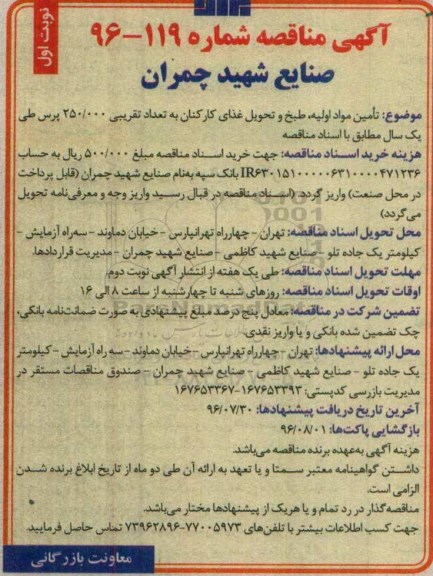 نوبت اول
آگهی مناقصه شماره ۱۱۹-۹۶
صنایع شهید چمران
موضوع: تأمین مواد اولیه، طبخ و تحویل غذای کارکنان به تعداد تقریبی ۲۵۰/۰۰۰ پرس طی
یک سال مطابق با اسناد مناقصه
هزینه خرید اسـناد مناقصه: جهت خرید اسـناد مناقصه مبلغ ۵۰۰/۰۰۰ ریال به حساب
IR۶۳۰۱۵۱۰۰۰۰۰۶۳۱۰۰۰۰۴۷۱۲۳۶ بانک سپه به‌نام صنایع شهید چمران (قابل پرداخت
در محل صنعت) واریز گردد. (اسـناد مناقصه در قبال رسـید واریز وجه و معرفی‌نامه تحویل
می‌گردد)
محل تحویل اسناد مناقصه: تهران - چهارراه تهرانپارس - خیابان دماوند - سه‌راه آزمایش -
کیلومتر یک جاده تلو - صنایع شهید کاظمی - صنایع شهید چمران - مدیریت قراردادها.
مهلت تحویل اسناد مناقصه: طی یک هفته از انتشار آگهی نوبت دوم.
اوقات تحویل اسناد مناقصه: روزهای شنبه تا چهارشنبه از ساعت ۸ الی ۱۶
تضمین شرکت در مناقصه: معادل پنج درصد مبلغ پیشنهادی به صورت ضمانت‌نامه بانکی،
چک تضمین شده بانکی و یا واریز نقدی.
محل ارائه پیشنهادها: تهران - چهارراه تهرانپارس - خیابان دماوند - سه راه آزمایش - کیلومتر
یک جاده تلو - صنایع شهید کاظمی - صنایع شهید چمران - صندوق مناقصات مستقر در
مدیریت بازرسی کدپستی: ۱۶۷۶۵۳۳۹۳-۱۶۷۶۵۳۳۶۷
آخرین تاریخ دریافت پیشنهادها: ۹۶/۰۷/۳۰
بازگشایی پاکت‌ها: ۹۶/۰۸/۰۱
هزینه آگهی به‌عهده برنده مناقصه می‌باشد.
داشـتن گواهینامه معتبر سـمتا و یا تعهد به ارائه آن طی دو ماه از تاریخ ابلاغ برنده شـدن
الزامی است.
مناقصه‌گذار در رد تمام و یا هریک از پیشنهادها مختار می‌باشد.
جهت کسب اطلاعات بیشتر با تلفن‌های ۷۷۰۰۵۹۷۳-۷۳۹۶۲۸۹۶ تماس حاصل فرمایید.
معاونت بازرگانی